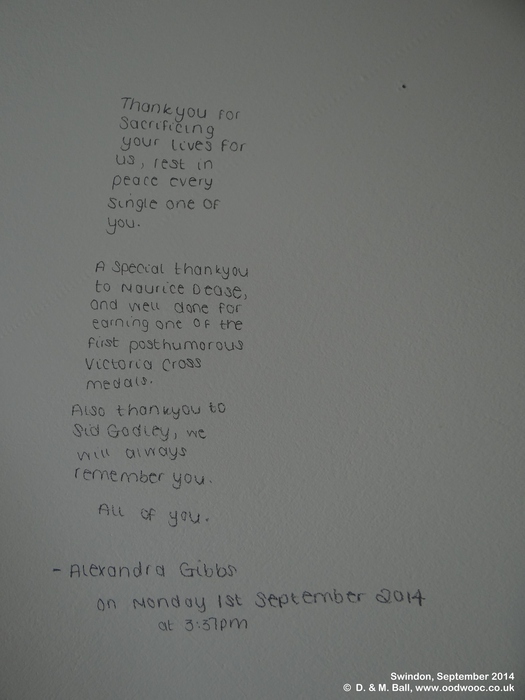 Thankyou for
Sacrificing
your lives for
us, rest in
peace every
single one of
you.
A special thankyou
to Maurice Dease,
and well done for
earning one of the
first posthumorous
Victoria Cross
medals.
Also thankyou to
Sid Godley, we
will always
remember you.
All of you.
- Alexandra Gibbs
on Monday 1st September 2014
at 3:37pm
Swindon, September 2014
© D. & M. Ball, www.oodwooc.co.uk